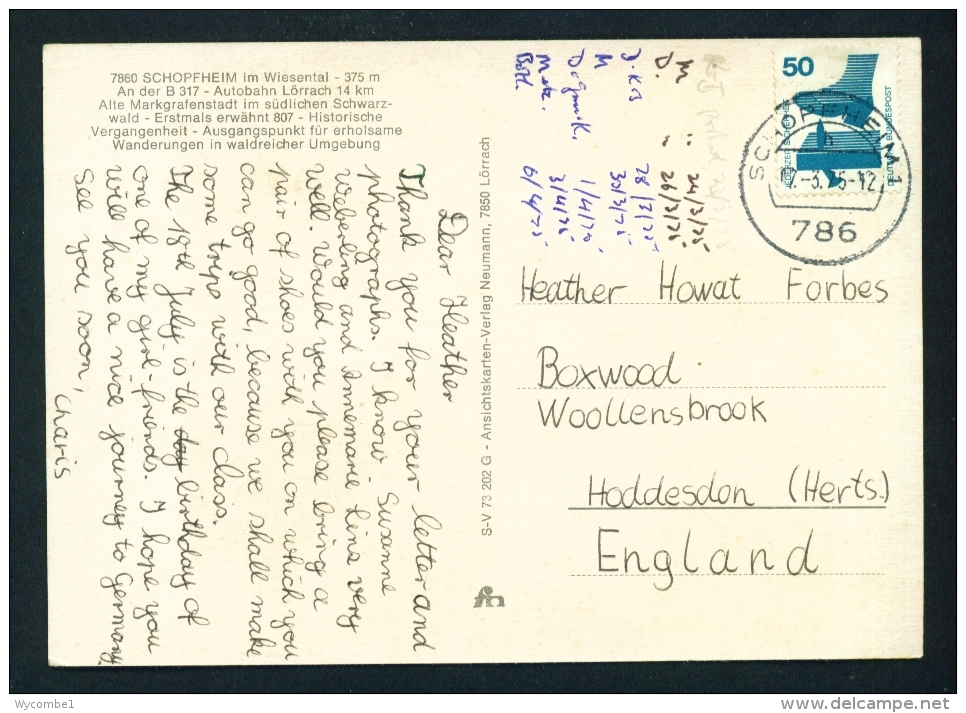 7860 SCHOPFHEIM im Wiesental - 375 m
An der B 317 - Autobahn Lörrach 14 km
Alte Markgrafenstadt im südlichen Schwarz-
wald - Erstmals erwähnt 807 - Historische
Vergangenheit - Ausgangspunkt für erholsame
Wanderungen in waldreicher Umgebung
Dear Heather
Thank you for your letter and
photographs. I know Susanne
Weberling and Annemarie Lins very
well. Would you please bring a
pair of shoes with you on which you
can go good, because we shall make
some trips with our class.
The 18th July is the day birthday of
one of my girl-friends. I hope you
will have a nice journey to Germany.
See you soon,
Charis
S-V 73 202 G - Ansichtskarten-Verlag Neumann, 7850 Lörrach
M " 24/3/75
D. " 26/3/75
28/3/75
M 30/3/75
1/4/75
3/4/75
Both 6/4/75
50
DEUTSCHE BUNDESPOST
SCHOPFHEIM 1
-3.75-12
786
Heather Howat Forbes
Boxwood
Woollensbrook
Hoddesdon (Herts.)
England
Wycombe1